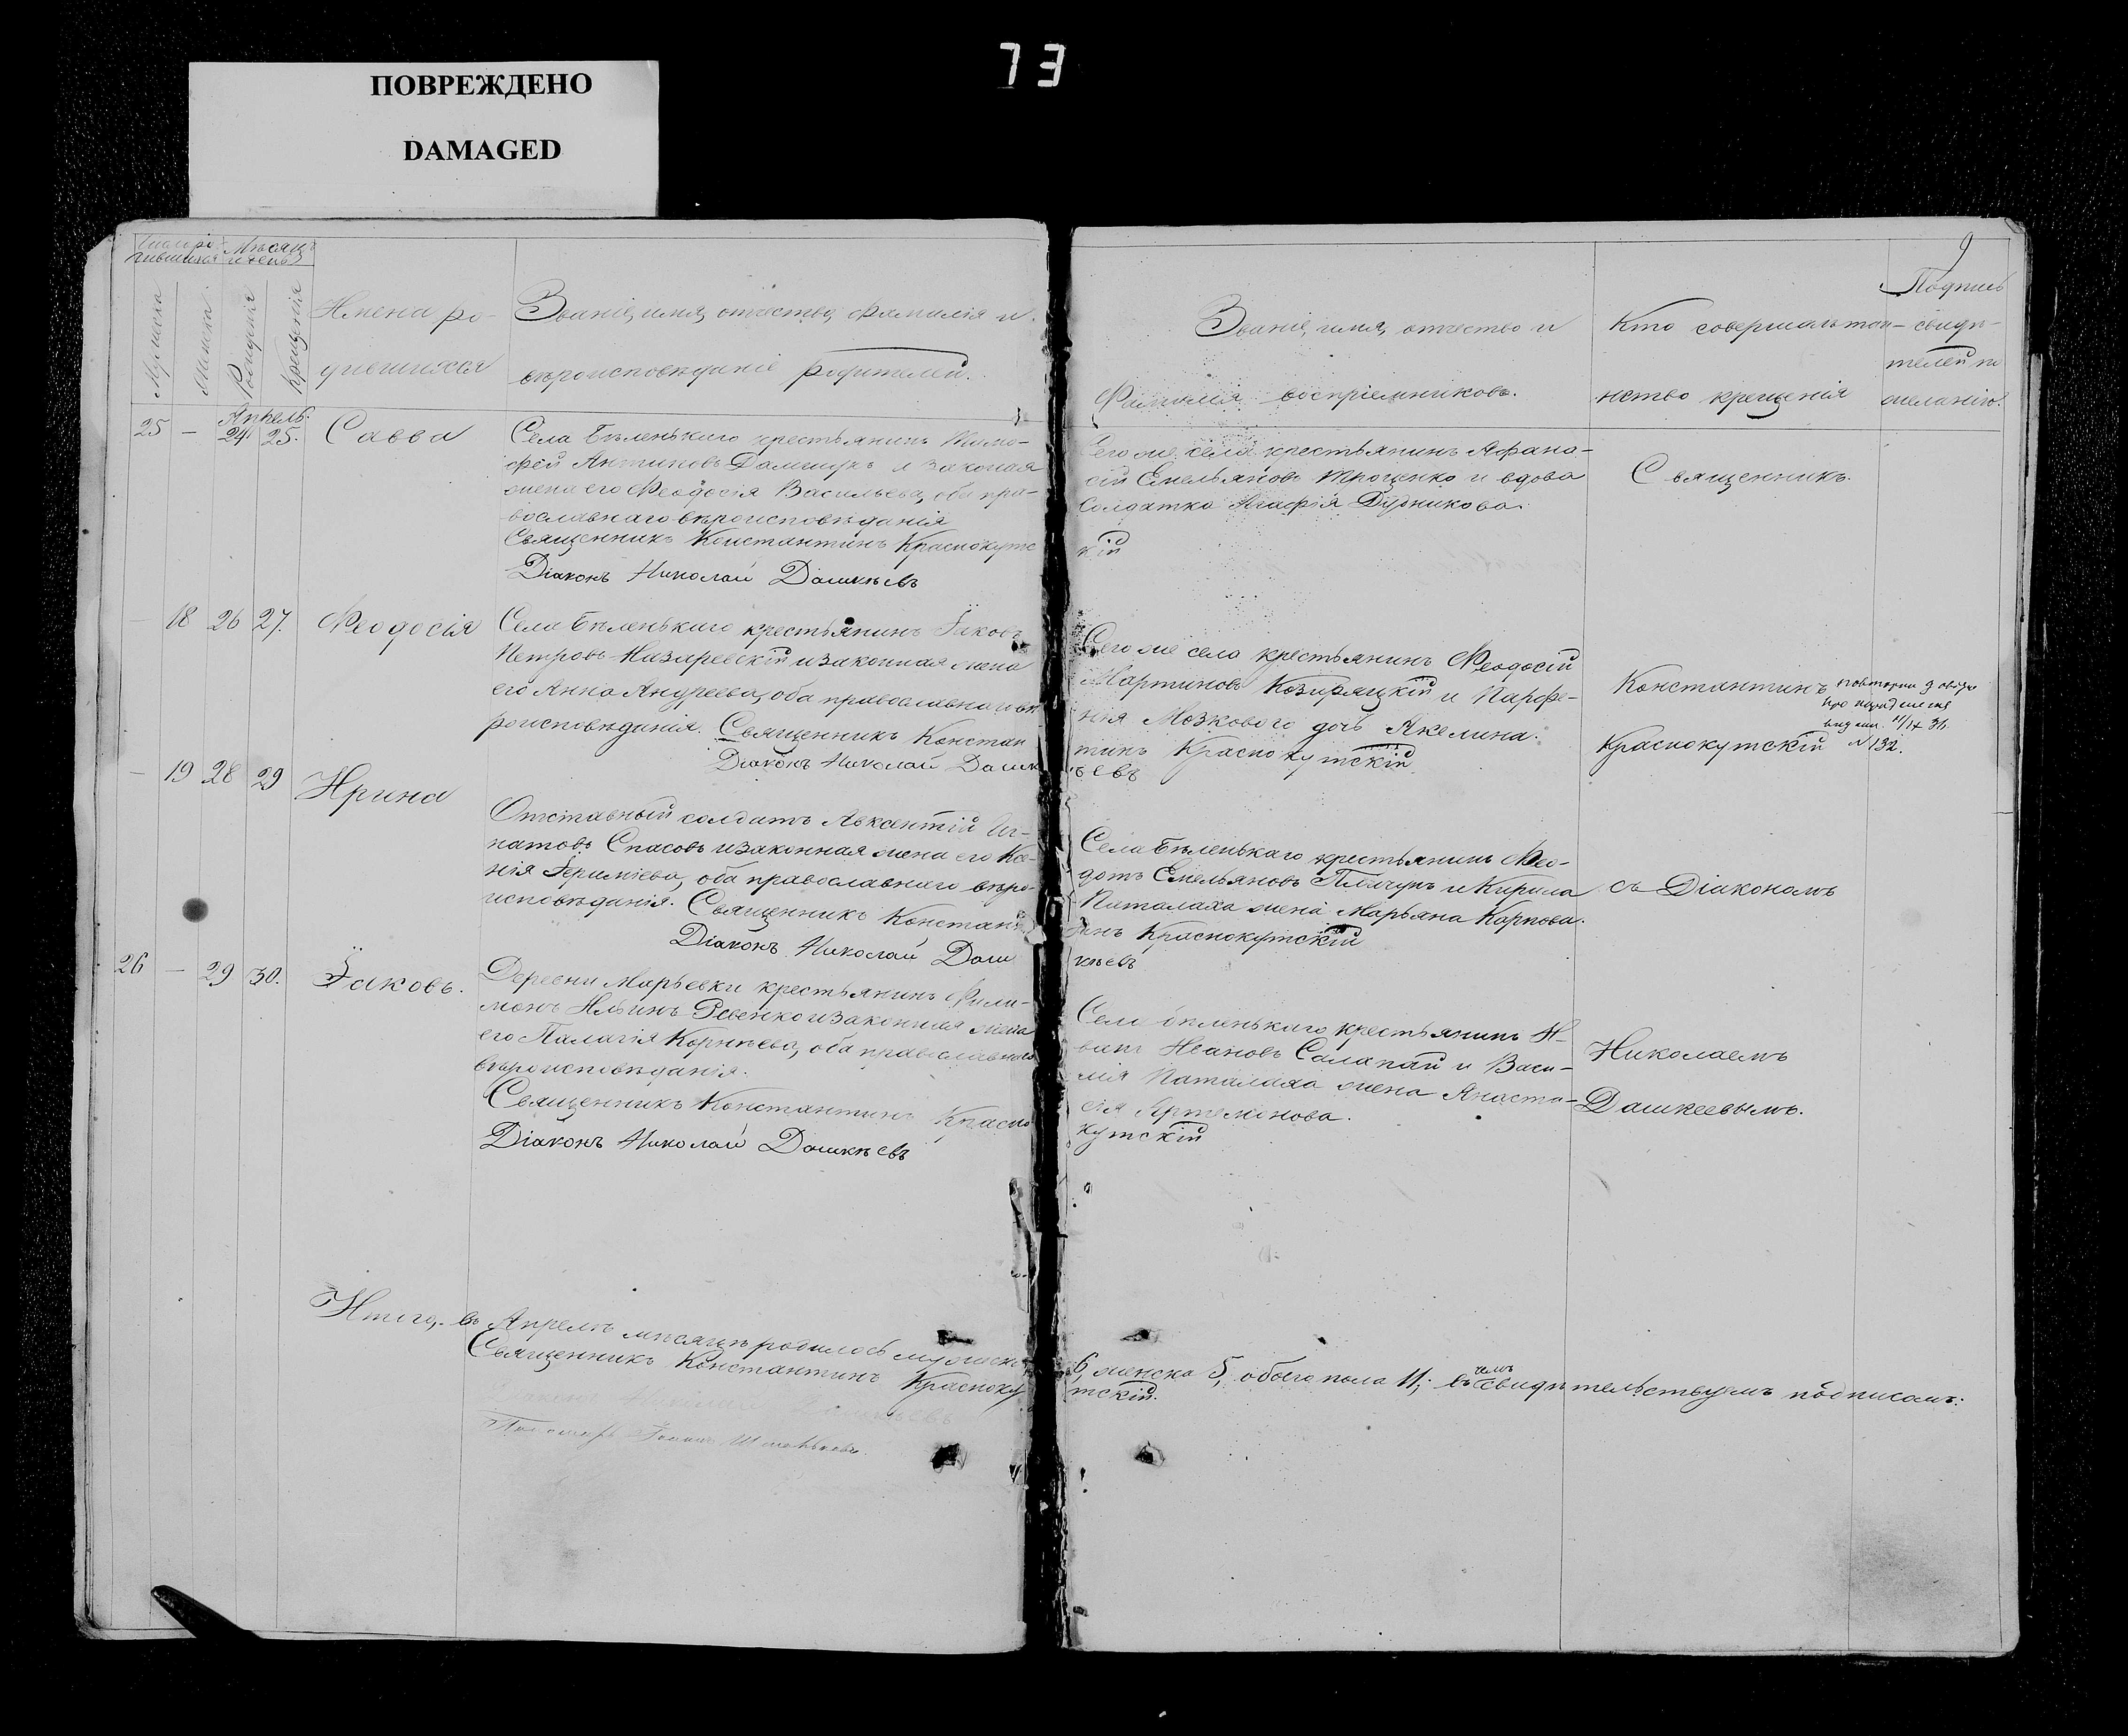 73
ПОВРЕЖДЕНО
DAMAGED
9
Мѣсяцъ
и день
Мужеска
Женска
Рожденія
Крещенія
Имена ро-
дившихся
Званіе, имя, отчество, фамилія и
вѣроисповѣданіе родителей.
Званіе, имя, отчество и
Фамилія воспріемниковъ.
Кто совершалъ таи-
нство крещенія
Подпись
свидѣ-
телей по
желанію.
Апрель.
25 – 24 25. Савва
Села Бѣленькаго крестьянинъ Тимо-
фей Антиповъ и законая
жена его Феодосія Васильева, оба пра-
вославнаго вѣроисповѣданія
Священникъ Константинъ Краснокутс
Діаконъ Николай Дашкѣевъ
Сего же села крестьянинъ Афана-
сій Емельяновъ Троценко и вдова
Солдатка Агафія Дудникова.
кій
Священникъ.
– 18 26 27. Феодосія
Села Бѣленькаго крестьянинъ Іаковъ
Петровъ Назаревскій и законная жена
его Анна Андреева, оба православнаго вѣ
роисповѣданія. Священникъ Констан
Діаконъ Николай Дашк
Сего же села крестьянинъ Феодосій
Мартиновъ и Парфе-
нія Мозкового дочь Акелина.
тинъ Краснокутскій
ѣевъ
Константинъ
Краснокутскій
N 132.
– 19 28 29 Ирина
Отставный солдатъ Авксентій Иг-
натовъ Спасовъ и законная жена его Ксе-
нія Іеримиева, оба православнаго вѣро-
исповѣданія. Священникъ Констан
Діаконъ Николай Даш
Села Бѣленькаго крестьянинъ Фео-
дотъ Емельяновъ и Кирила
Паталаха жена Марьяна Карпова.
тинъ Краснокутскій
кѣевъ
съ Діакономъ
26 – 29 30. Іаковъ.
Деревни Марьевки крестьянинъ Фили-
монъ Ильинъ Ревенко и законная жена
его Палагія Корнѣева, оба православнаго
вѣроисповѣданія.
Священникъ Константинъ Красно
Діаконъ Николай Дашкѣевъ
Села бѣленькаго крестьянинъ И-
ванъ Ивановъ Салапай и Васи-
лія Паталаха жена Анаста-
сія Артемонова.
кутскій
Николаемъ
Дашкеевымъ.
Итого, въ Апрелѣ мѣсяцѣ родилось мужеска
6, женска 5, обоего пола 11; въ чемъ свидѣтельствуемъ подписомъ:
Священникъ Константинъ Красноку
тскій.